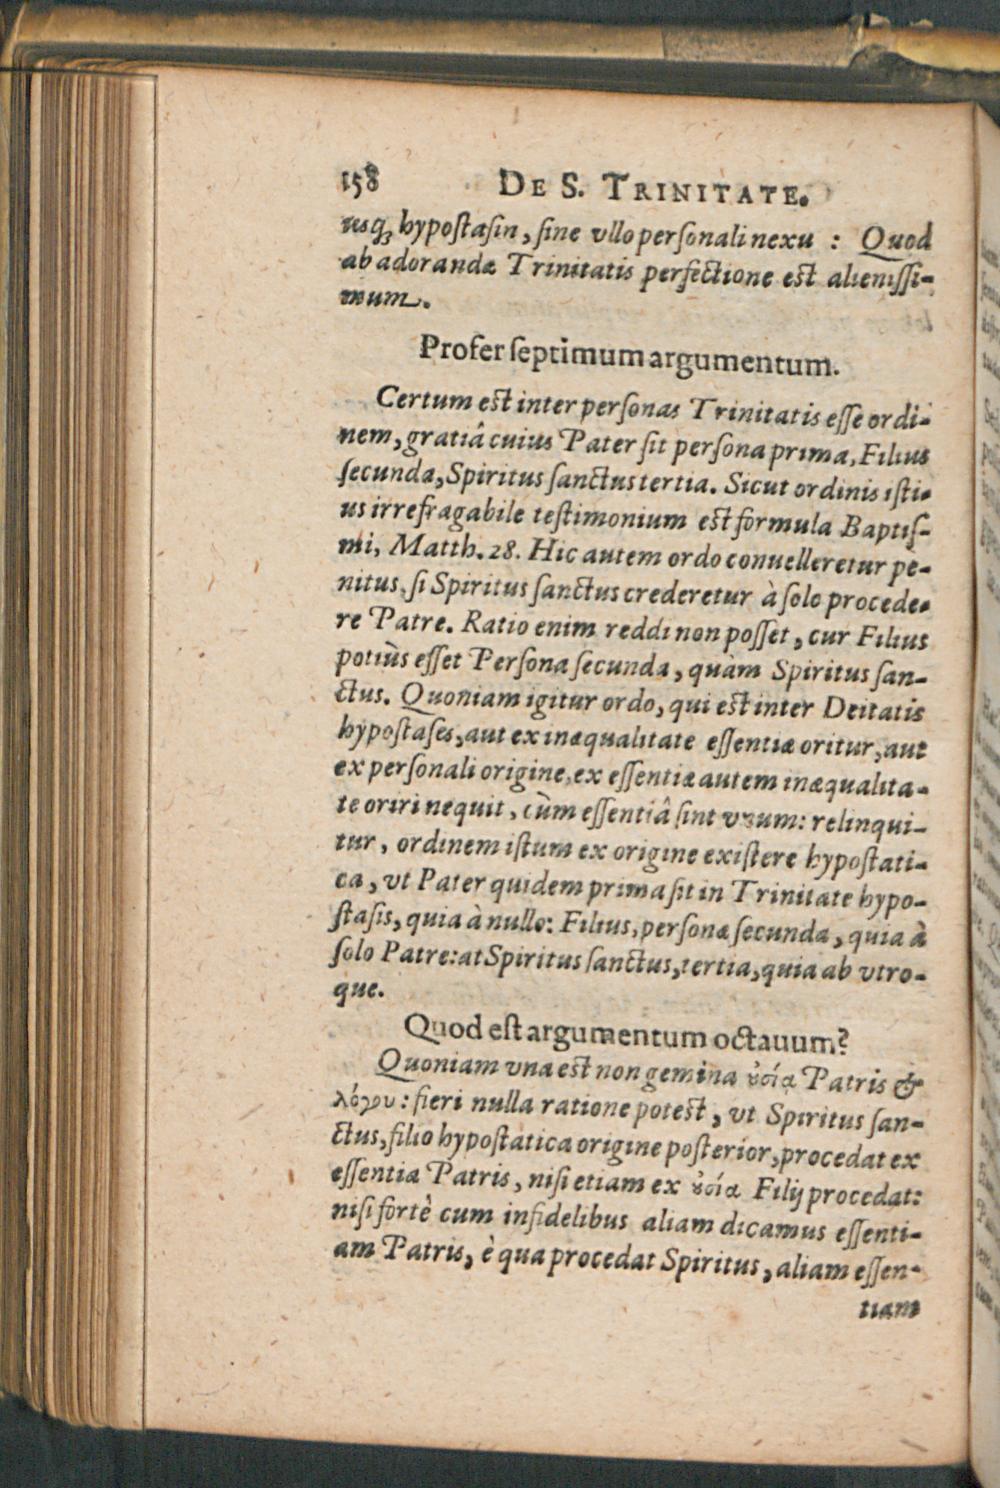 158 DE S. TRINITATE.
iusq́; hypostasin, sine vllo personali nexu : Quod
ab adorandæ Trinitatis perfectione est alienissi-
mum.
Profer septimum argumentum.
Certum est inter personas Trinitatis esse ordi-
nem, gratiâ cuius Pater sit persona prima, Filius
secunda, Spiritus sanctus tertia. Sicut ordinis isti-
us irrefragabile testimonium est formula Baptis-
mi, Matth. 28. Hic autem ordo conuelleretur pe-
nitus, si Spiritus sanctus crederetur à solo procede-
re Patre. Ratio enim reddi non posset, cur Filius
potiùs esset Persona secunda, quàm Spiritus san-
ctus. Quoniam igitur ordo, qui est inter Deitatis
hypostases, aut ex inæqualitate essentiæ oritur, aut
ex personali origine, ex essentiæ autem inæqualita-
te oriri nequit, cùm essentiâ sint vnum: relinqui-
tur, ordinem istum ex origine existere hypostati-
ca, vt Pater quidem prima sit in Trinitate hypo-
stasis, quia à nullo: Filius, persona secunda, quia à
solo Patre: at Spiritus sanctus, tertia, quia ab vtro-
que.
Quod est argumentum octauum?
Quoniam vna est non gemina ȣ̓σία Patris &
λόγου: fieri nulla ratione potest, vt Spiritus san-
ctus, filio hypostatica origine posterior, procedat ex
essentia Patris, nisi etiam ex ȣ̓σίᾳ Filij procedat:
nisi fortè cum infidelibus aliam dicamus essenti-
am Patris, è qua procedat Spiritus, aliam essen-
tiam